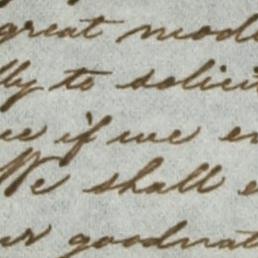 great mod
lly to solicit
ue if we en
We shall e
ur goodnat